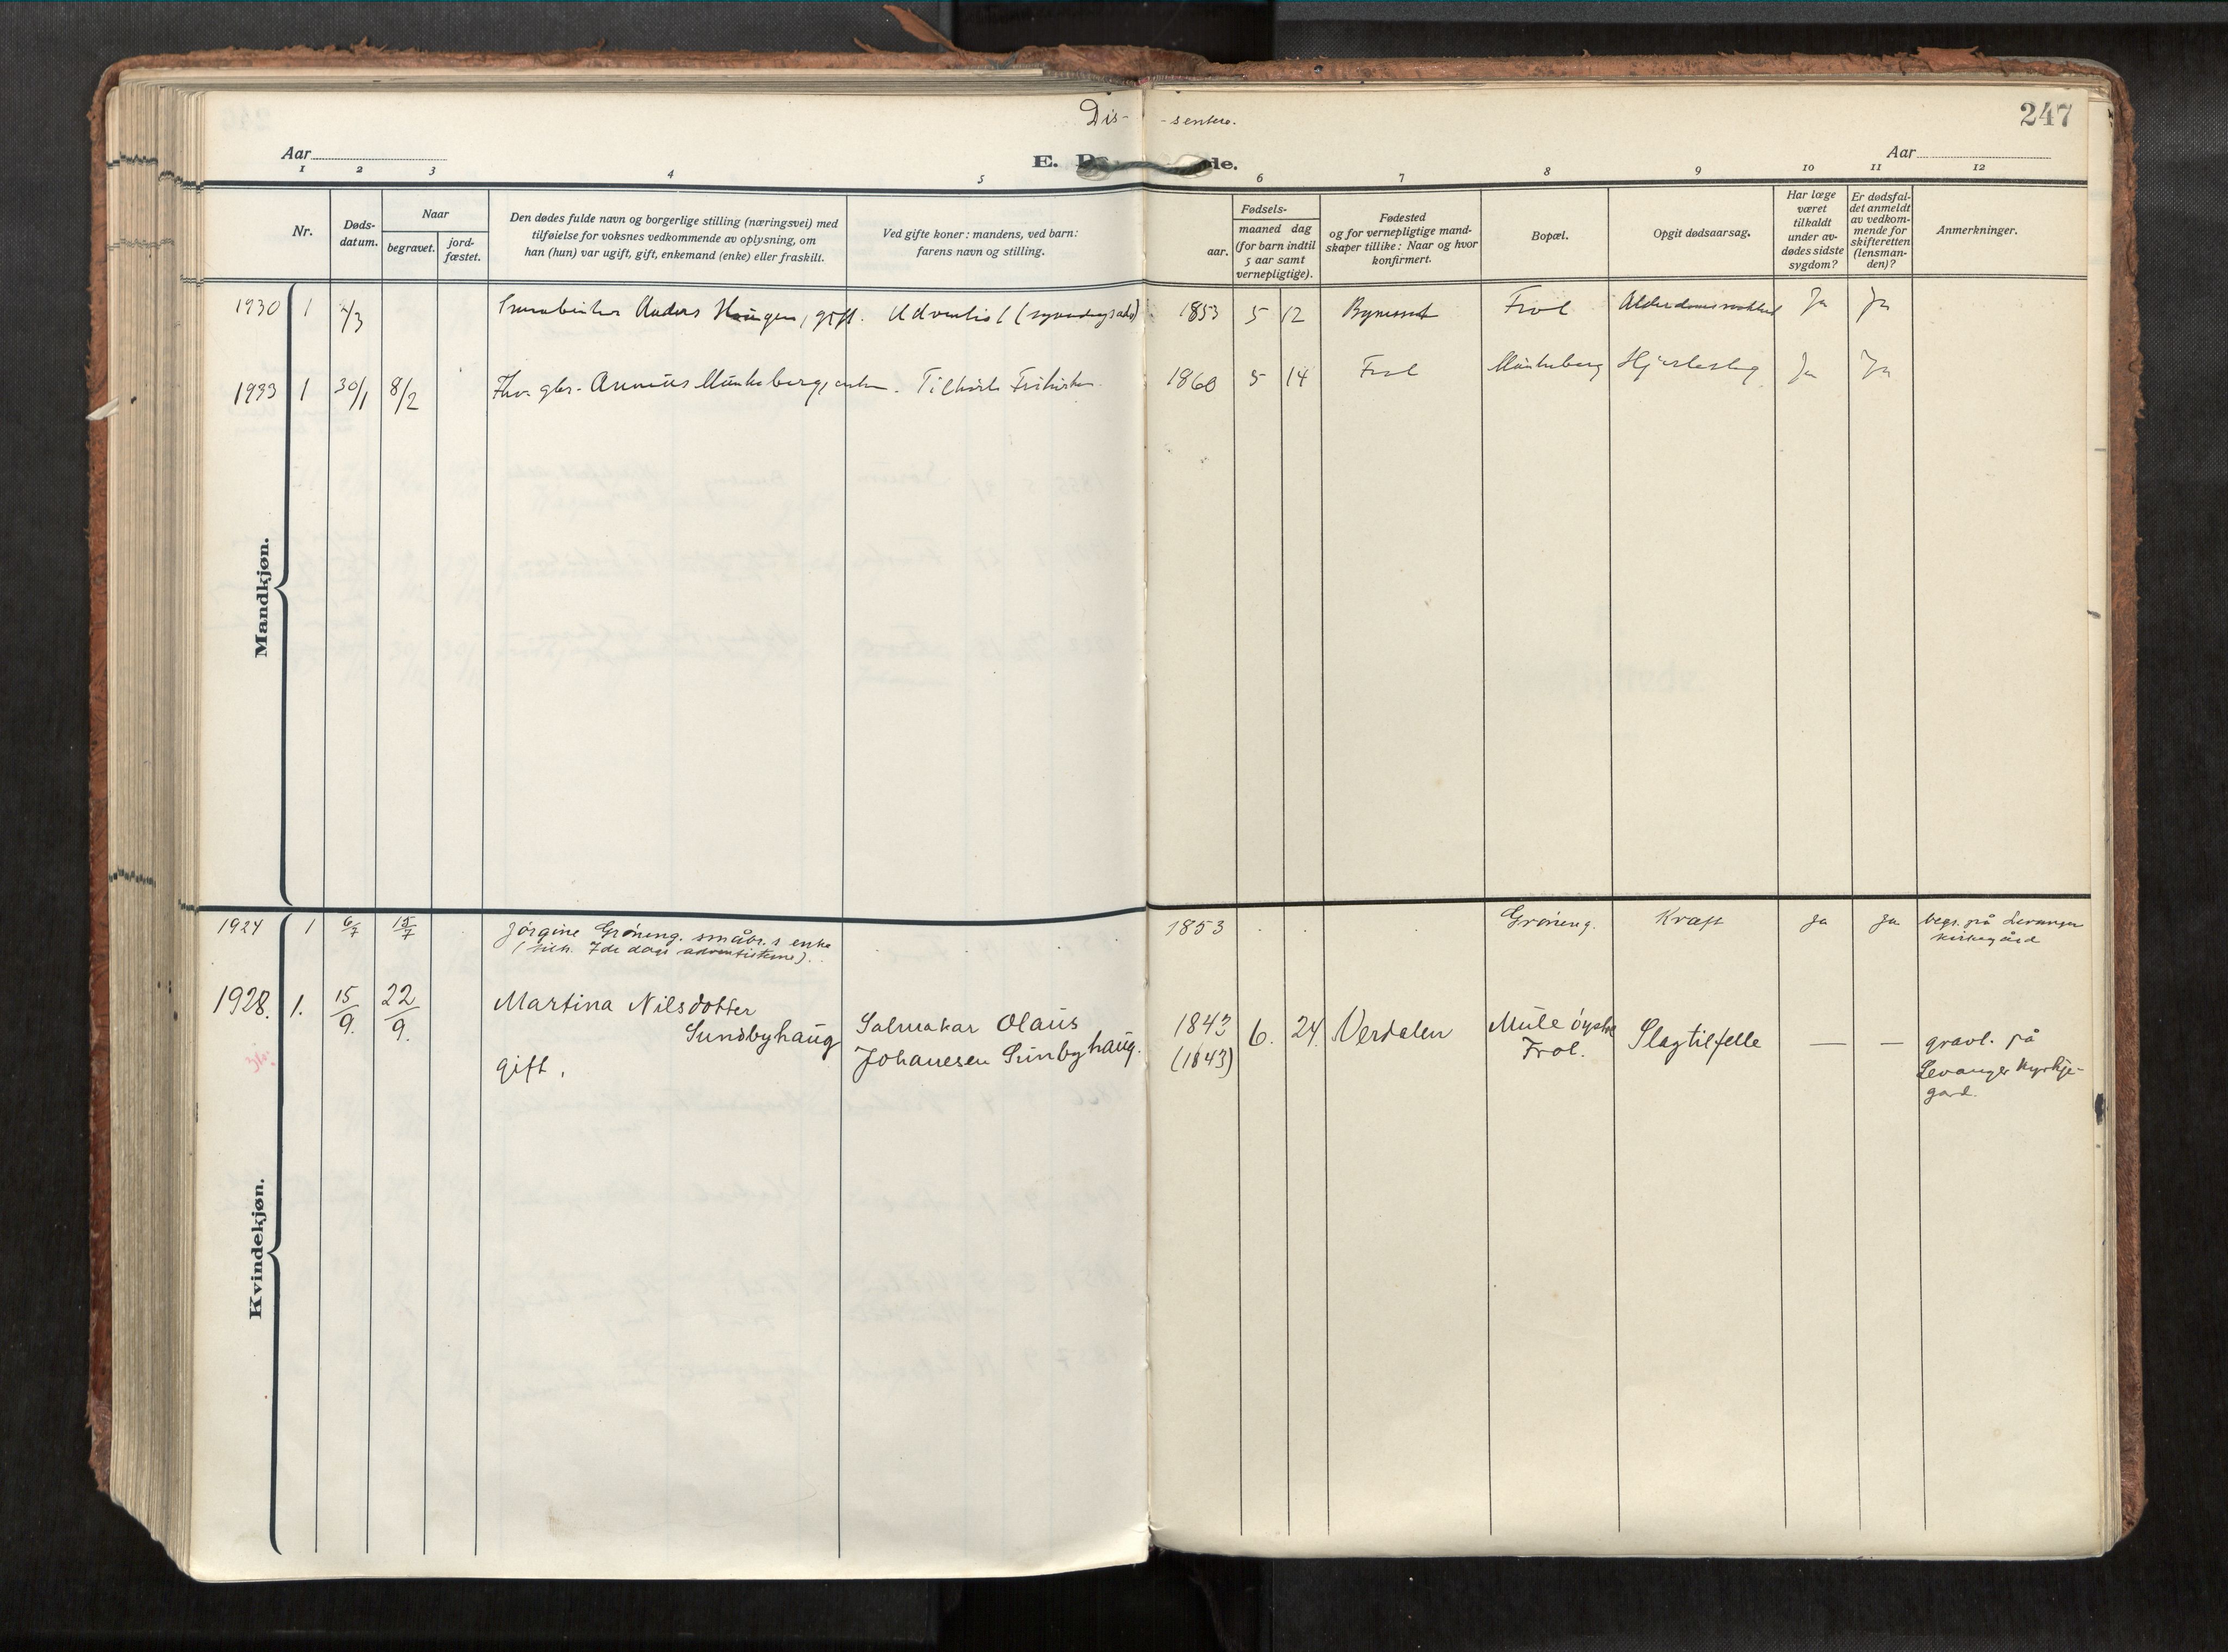 Dis- -sentere.
247
Aar
E. D de.
Aar
1 2 3 4 5 6 7 8 9 10 11 12
Nr.
Døds-
datum.
Naar
begravet.
jord-
fæstet.
Den dødes fulde navn og borgerlige stilling (næringsvei) med
tilføielse for voksnes vedkommende av oplysning, om
han (hun) var ugift, gift, enkemand (enke) eller fraskilt.
Ved gifte koner: mandens, ved barn:
farens navn og stilling.
Fødsels-
aar.
maaned dag
(for barn indtil
5 aar samt
vernepligtige).
Fødested
og for vernepligtige mand-
skaper tillike: Naar og hvor
konfirmert.
Bopæl.
Opgit dødsaarsag.
Har læge
været
tilkaldt
under av-
dødes sidste
sygdom?
Er dødsfal-
det anmeldt
av vedkom-
mende for
skifteretten
(lensman-
den)?
Anmerkninger.
Mandkjøn.
1930 1 /3 Anders Haugen, gift. Adventist 1853 5 12 Bynesset Frol Ja Ja
1933 1 30/1 8/2 Munkeberg, enkem. Tilhørte Frikirken. 1860 5 14 Frol Munkeberg Hjerteslag Ja Ja
Kvindekjøn.
1924 1 6/7 15/7 Jørgine Grøning. småbr.s enke 1853 Grøning. Kræft ja ja begr. på Levanger
(tilh. 7de dags adventisterne). kirkegård
1928. 1. 15/9. 22/9. Martina Nilsdotter
Sundbyhaug
gift.
Salmakar Olaus
Johanesen Sunbyhaug.
1842
(1843)
6. 24. Verdalen
Mule øystre
Frol.
Slagtilfelle — —
gravl. på
Levanger kyrkje-
gard.